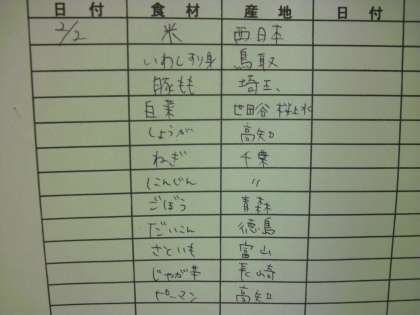 日付 食材 産地 日付
2/2 米 西日本
いわしすり身 鳥取
豚もも 埼玉、
白菜 世田谷 桜上水
しょうが 高知
ねぎ 千葉
にんじん 〃
ごぼう 青森
だいこん 徳島
さといも 富山
じゃが芋 長崎
ピーマン 高知